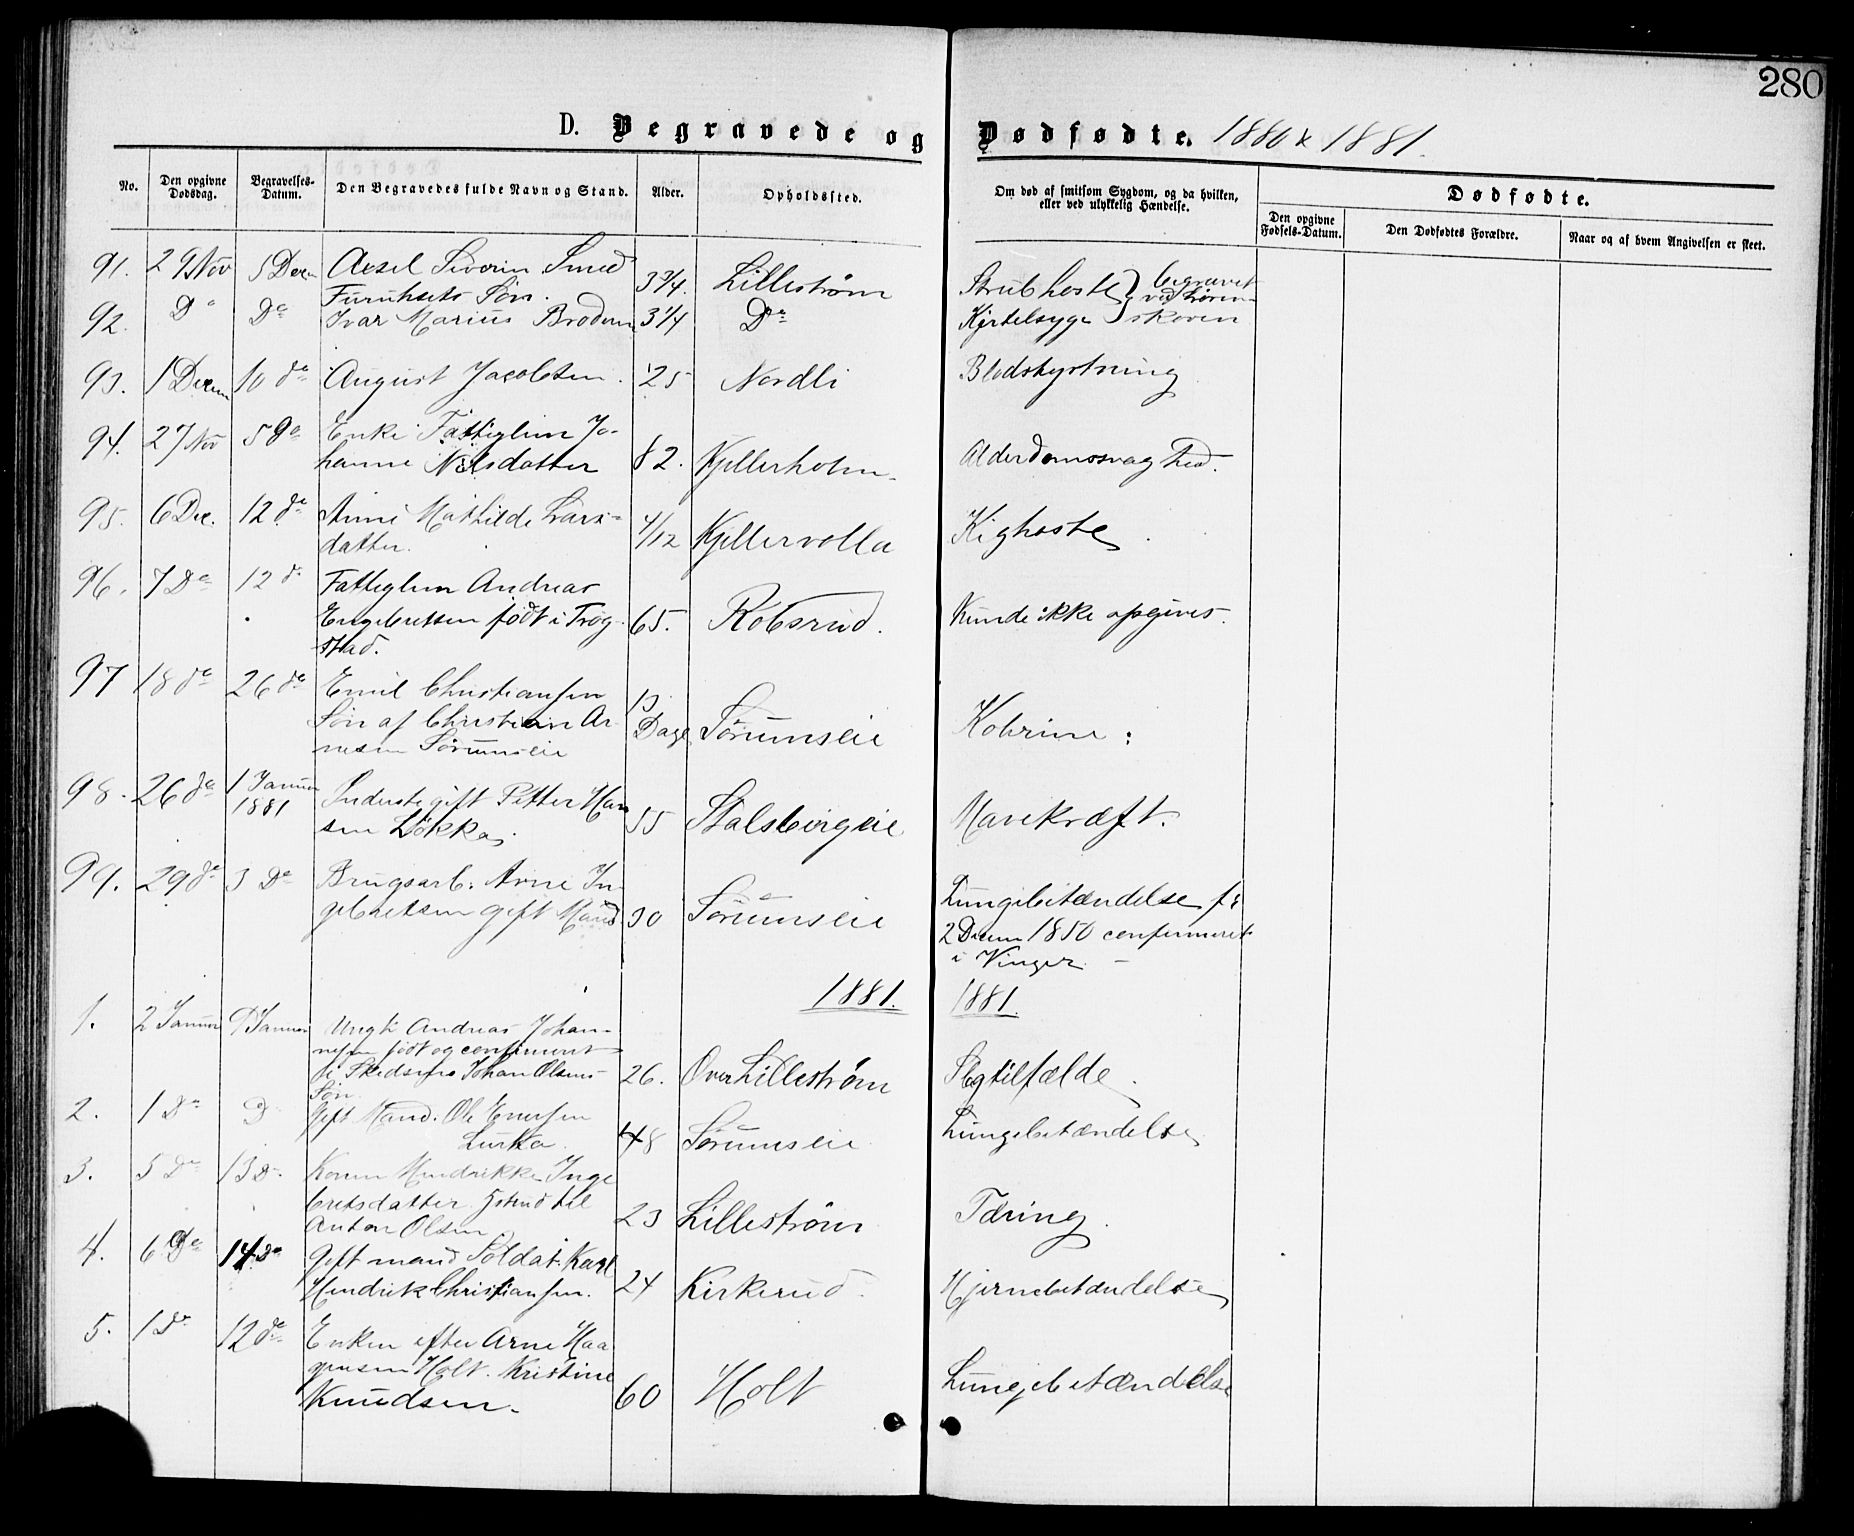 280
D. Begravede og Dødfødte. 1880 & 1881.
No.
Den opgivne Dødsdag.
Begravelses-Datum.
Den Begravedes fulde Navn og Stand.
Alder.
Opholdssted.
Om død af smitsom Sygdom, og da hvilken,
eller ved ulykkelig Hændelse.
Dødfødte.
Den opgivne Fødsels-Datum.
Den Dødfødtes Forældre.
Naar og af hvem Angivelsen er skeet.
91. 29 Nov 5 Decm Axsel Siverin Smed
Furuhsets Søn. 3 3/4. Lillestrøm Strubhoste begravet
92. Do Do Ivar Marius Brodern 3 1/4 Do Kjertelsyge skoven
93. 1 Decem 10 do August Jacobsen. 25 Nordli Blodstyrtning
94. 27 Nov 5 do Enke Fattiglem Jo-
hanne Nilsdatter 82. Kjellerholm. Alderdomssvaghed.
95. 6 Dec. 12 do Anne Mathilde Lars-
datter. 4/12 Kjellervolla Kighoste
96. 7 Do 12 d. Fattiglem Andreas
Engebretsen født i Trøg-
stad. 65. Robsrud. Kunde ikke opgives.
97 18 do 26 do Emil Christiansen
Søn af Christian Ar-
nesen Sørumseie 13 Dage Sørumseie
98. 26 do 1 Januar 1881 Inderste gift Petter Han
sen Løkka 55 Stalsbergeie Mavekræft.
99. 29 do 3 Do Brugsarb. Arne In-
gebretsen gift Mand 30 Sørumseie Lungebetændelse f:
2 Decem 1850 confirmeret
i Vinger
1881. 1881.
1. 2 Januar 9 Januar Ungk Andreas Johan-
nesen født og confirmeret
i Skedsmo Johan Olsens
Søn. 26. Over Lillestrøm Slagtilfælde.
2. 1 Do D Gift Mand. Ole Enersen
48 Sørumseie Lungebetændelse
3. 5 Do 13 D. Karen Hendrikke Inge
bretsdatter Hustrud til
Anton Olsen 23 Lillestrøm Tæring.
4. 6 do 14 do Gift mand Soldat. Karl
Hendrik Christiansen. 24 Kirkerud. Hjernebetændelse
5. 1 do 12 do Enken efter Arne Haa
gensen Holt. Kristine
Knudsen. 60 Holt Lungebetændelse